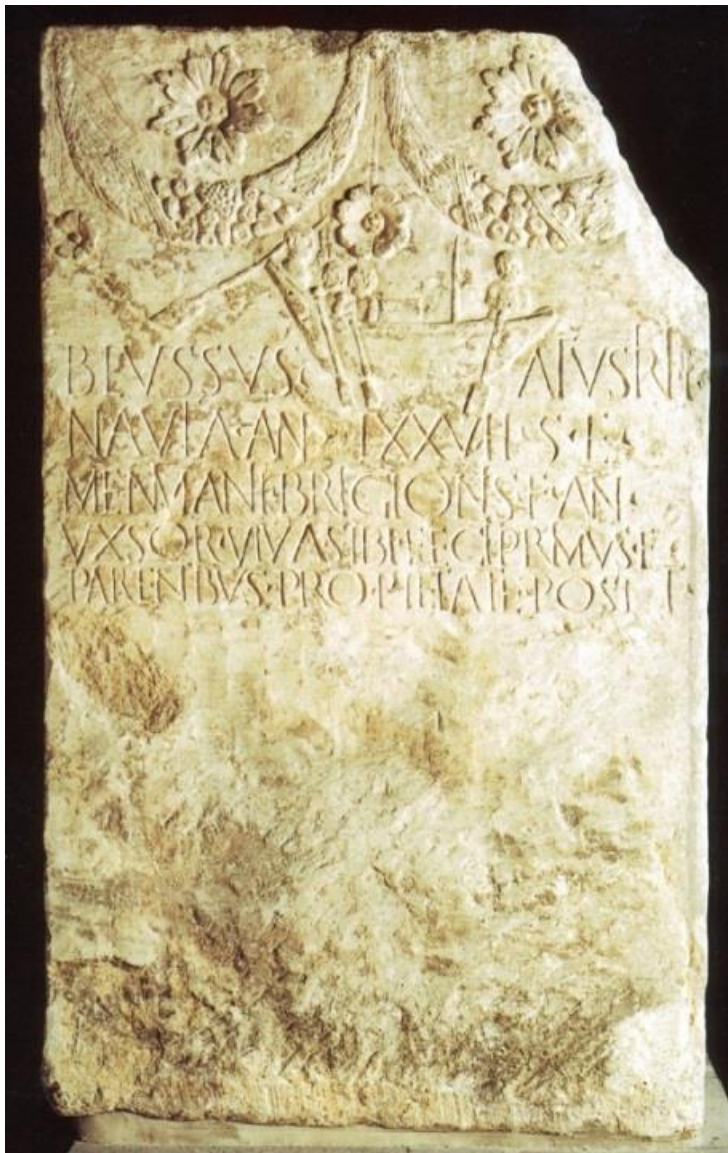 BLVSSVS ATVSIRI
NAVTA·AN·LXXVH·S·E
MENIMANE·BRIGIONIS·F·AN·
VXSOR·VIVA·SIBI·FECIT·PRIMVS·F
PARENTIBVS·PRO·PIETATE·POSIT